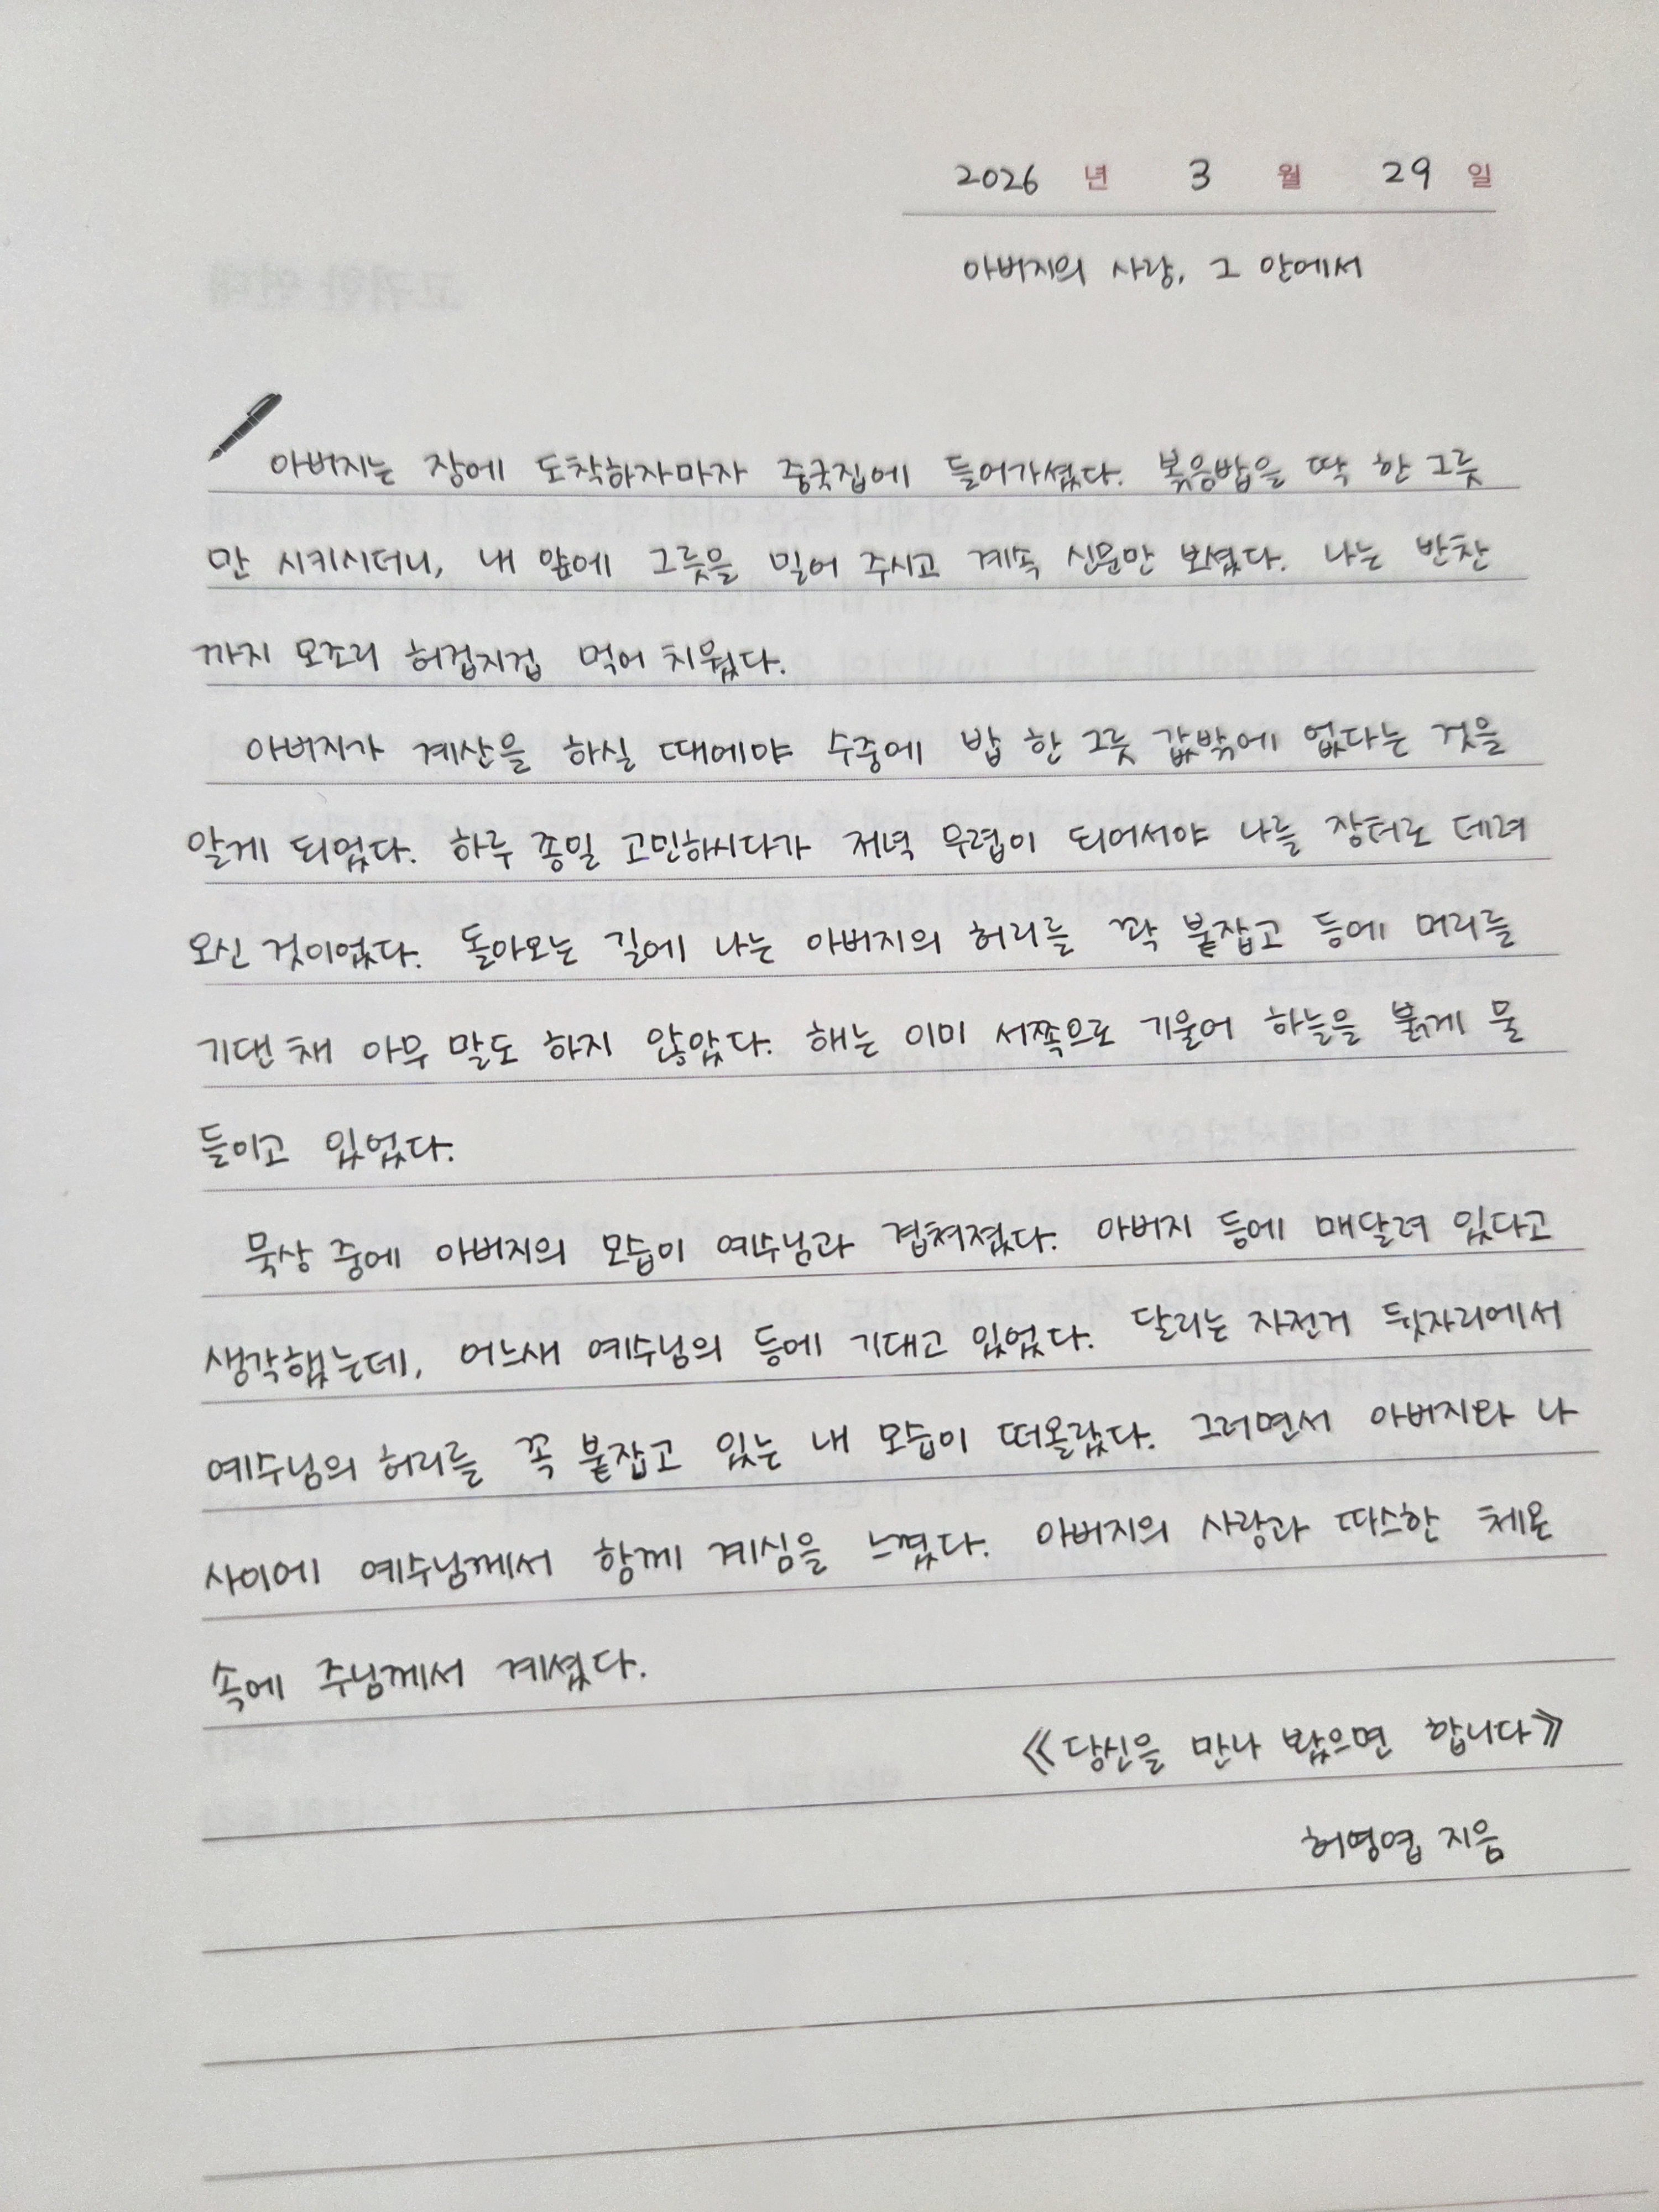 2026 년 3 월 29 일
아버지의 사랑, 그 안에서
아버지는 장에 도착하자마자 중국집에 들어가셨다. 볶음밥을 딱 한 그릇
만 시키시더니, 내 앞에 그릇을 밀어 주시고 계속 신문만 보셨다. 나는 반찬
까지 모조리 허겁지겁 먹어 치웠다.
아버지가 계산을 하실 때에야 수중에 밥 한 그릇 값밖에 없다는 것을
알게 되었다. 하루 종일 고민하시다가 저녁 무렵이 되어서야 나를 장터로 데려
오신 것이었다. 돌아오는 길에 나는 아버지의 허리를 꽉 붙잡고 등에 머리를
기댄 채 아무 말도 하지 않았다. 해는 이미 서쪽으로 기울어 하늘을 붉게 물
들이고 있었다.
묵상 중에 아버지의 모습이 예수님과 겹쳐졌다. 아버지 등에 매달려 있다고
생각했는데, 어느새 예수님의 등에 기대고 있었다. 달리는 자전거 뒷자리에서
예수님의 허리를 꼭 붙잡고 있는 내 모습이 떠올랐다. 그러면서 아버지와 나
사이에 예수님께서 함께 계심을 느꼈다. 아버지의 사랑과 따스한 체온
속에 주님께서 계셨다.
《당신을 만나 봤으면 합니다》
허영엽 지음